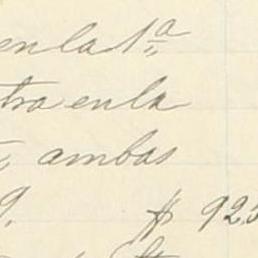 en la 1ª
tra en la
ambas
9. $ 923